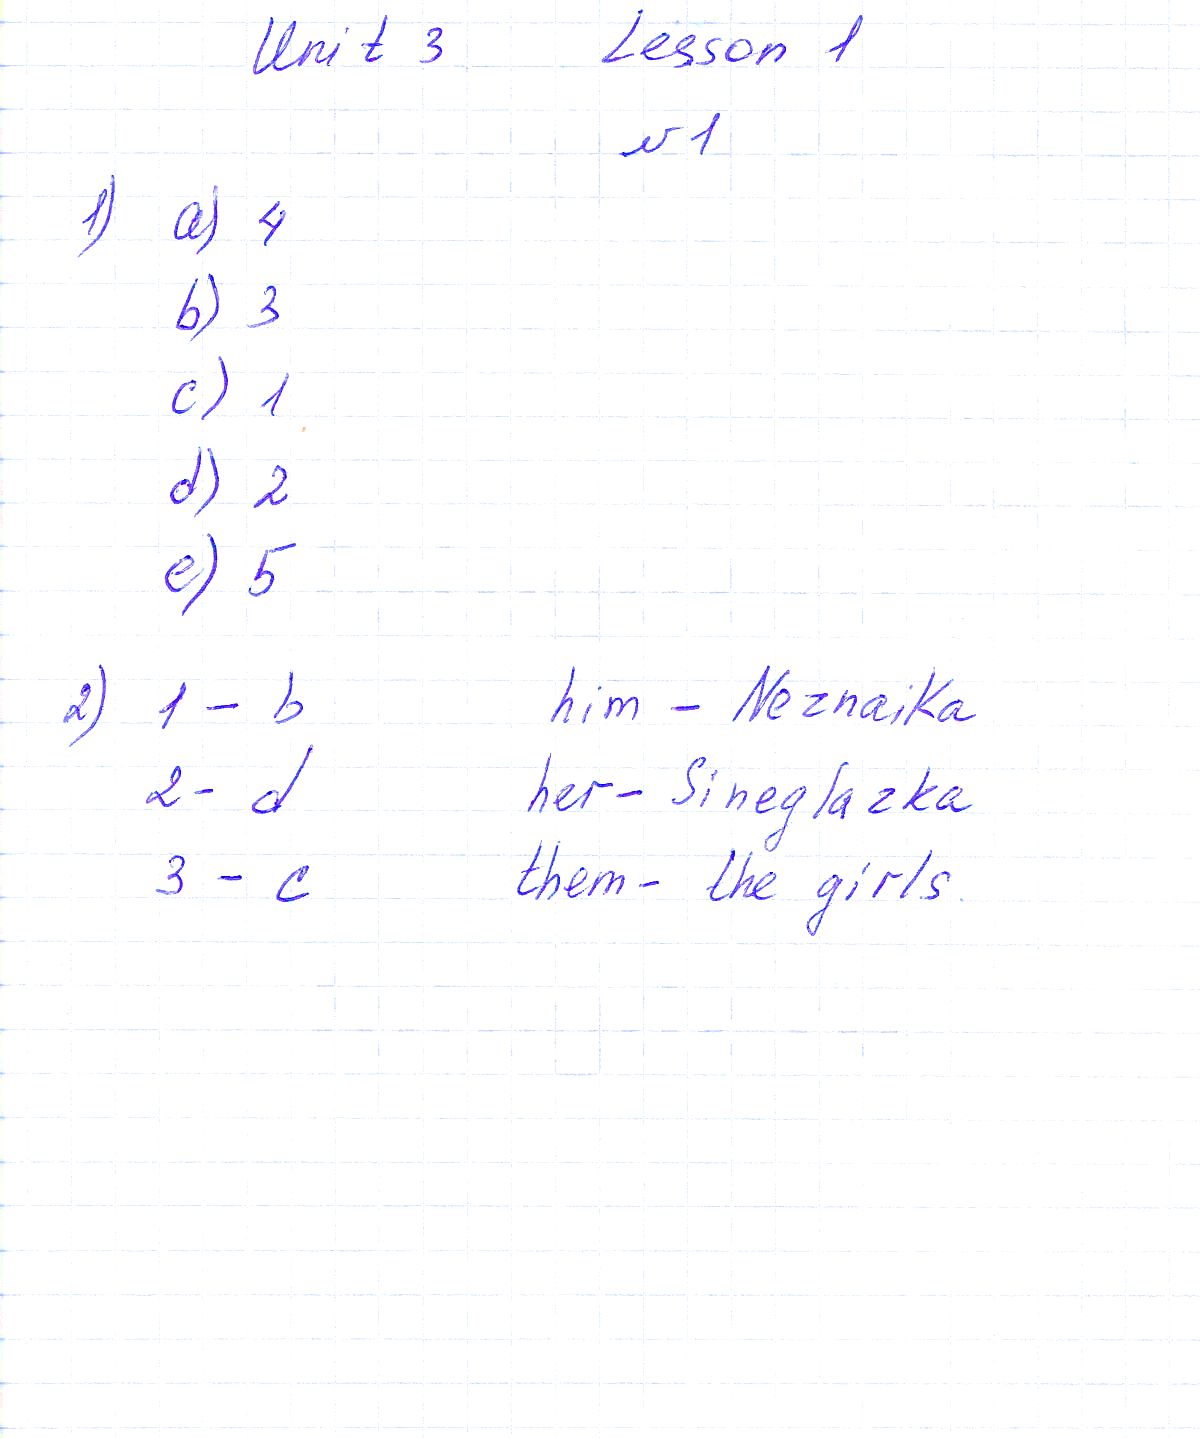 Unit 3 Lesson 1
№1
1) a) 4
b) 3
c) 1
d) 2
e) 5
2) 1 - b him - Neznaika
2 - d her - Sineglazka
3 - c them - the girls.